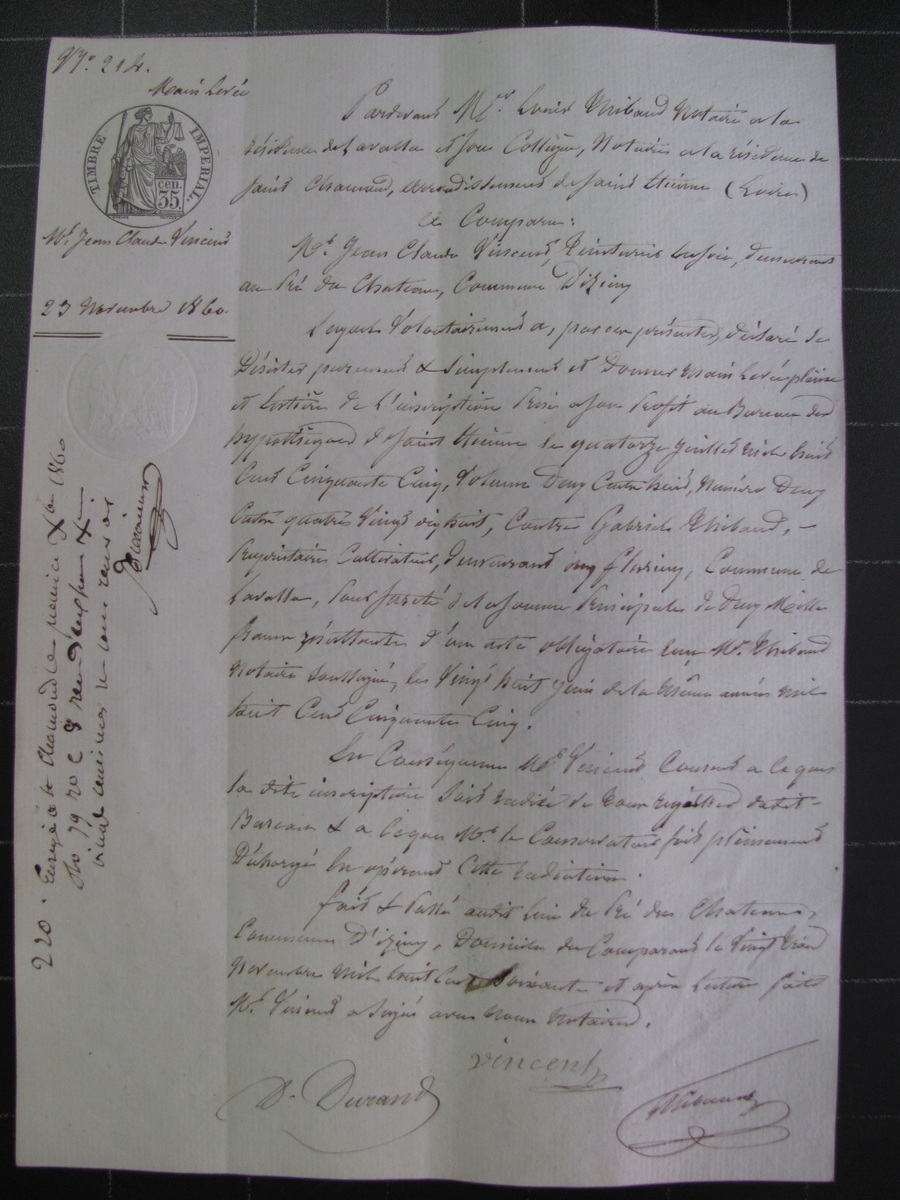 N.º 214.
Main Levée
TIMBRE IMPERIAL.
cen. 35.
Mr. Jean Claude Vincent
23 Novembre 1860.
Pardevant Me. Louis Thibaud Notaire a la
résidence de Lavalla et son Collègue, Notaires a la résidence de
Saint Chamond, arrondissement de Saint Etienne (Loire)
a Comparu:
Mr. Jean Claude Vincent, Teinturier en soie, demeurant
au Pré du Chateau, Commune D'izieux
Lequel Volontairement a, par ces présentes, déclaré se
Désister purement & Simplement et Donner Main Levée pleine
et Entière de L'inscription Prise a son Profit au Bureau des
hypothèques de Saint Etienne le quatorze juillet mil huit
Cent Cinquante Cinq, Volume Deux Cent, Numéro Deux
Cent quatre Vingt dix huit, Contre Gabriel Thibaud,
Propriétaire Cultivateur, demeurant, Commune de
Lavalla, Pour Sureté de la somme Principale de Deux Mille
francs résultante d'un acte obligatoire reçu Me. Thibaud
Notaire Soussigné, les Vingt huit Juin de la même année mil
huit Cent Cinquante Cinq.
En Conséquence Mr. Vincent Consent a ce que
la dite inscription Soit radiée de tous registres dudit
Bureau & a ce que Mr. le Conservateur soit pleinement
Déchargé En opérant Cette radiation.
fait & Passé audit lieu du Pré du Chateau,
Commune D'izieux, Domicile du Comparant le Vingt trois
Novembre Mil huit Cent Soixante et après Lecture faite
Mr. Vincent a signé avec Nous Notaires.
Vincent
D. Durand
Thibaud
220. Enregistré à St Chamond le 1860
fo 79 ro C 3 reçu deux francs &
vingt centimes